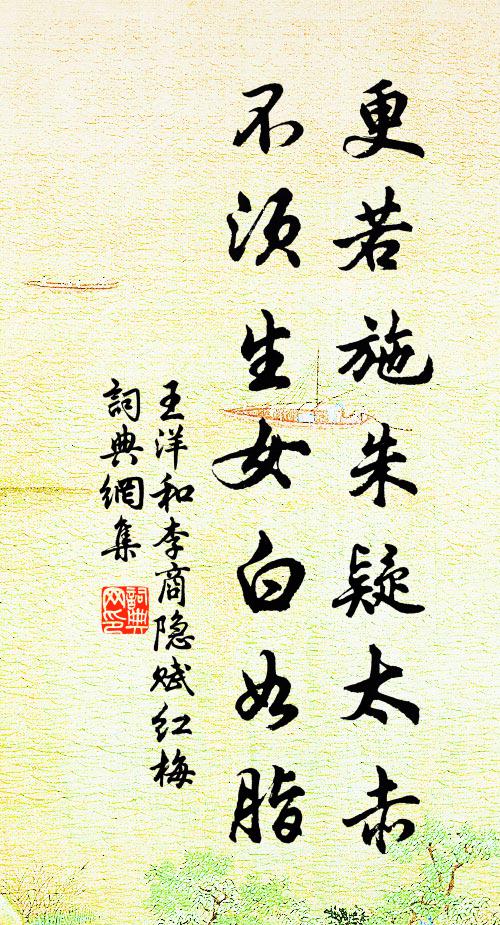 更若施朱疑太赤
不须生女白如脂
王洋和李商隐赋红梅
詞典網集
詞典网印